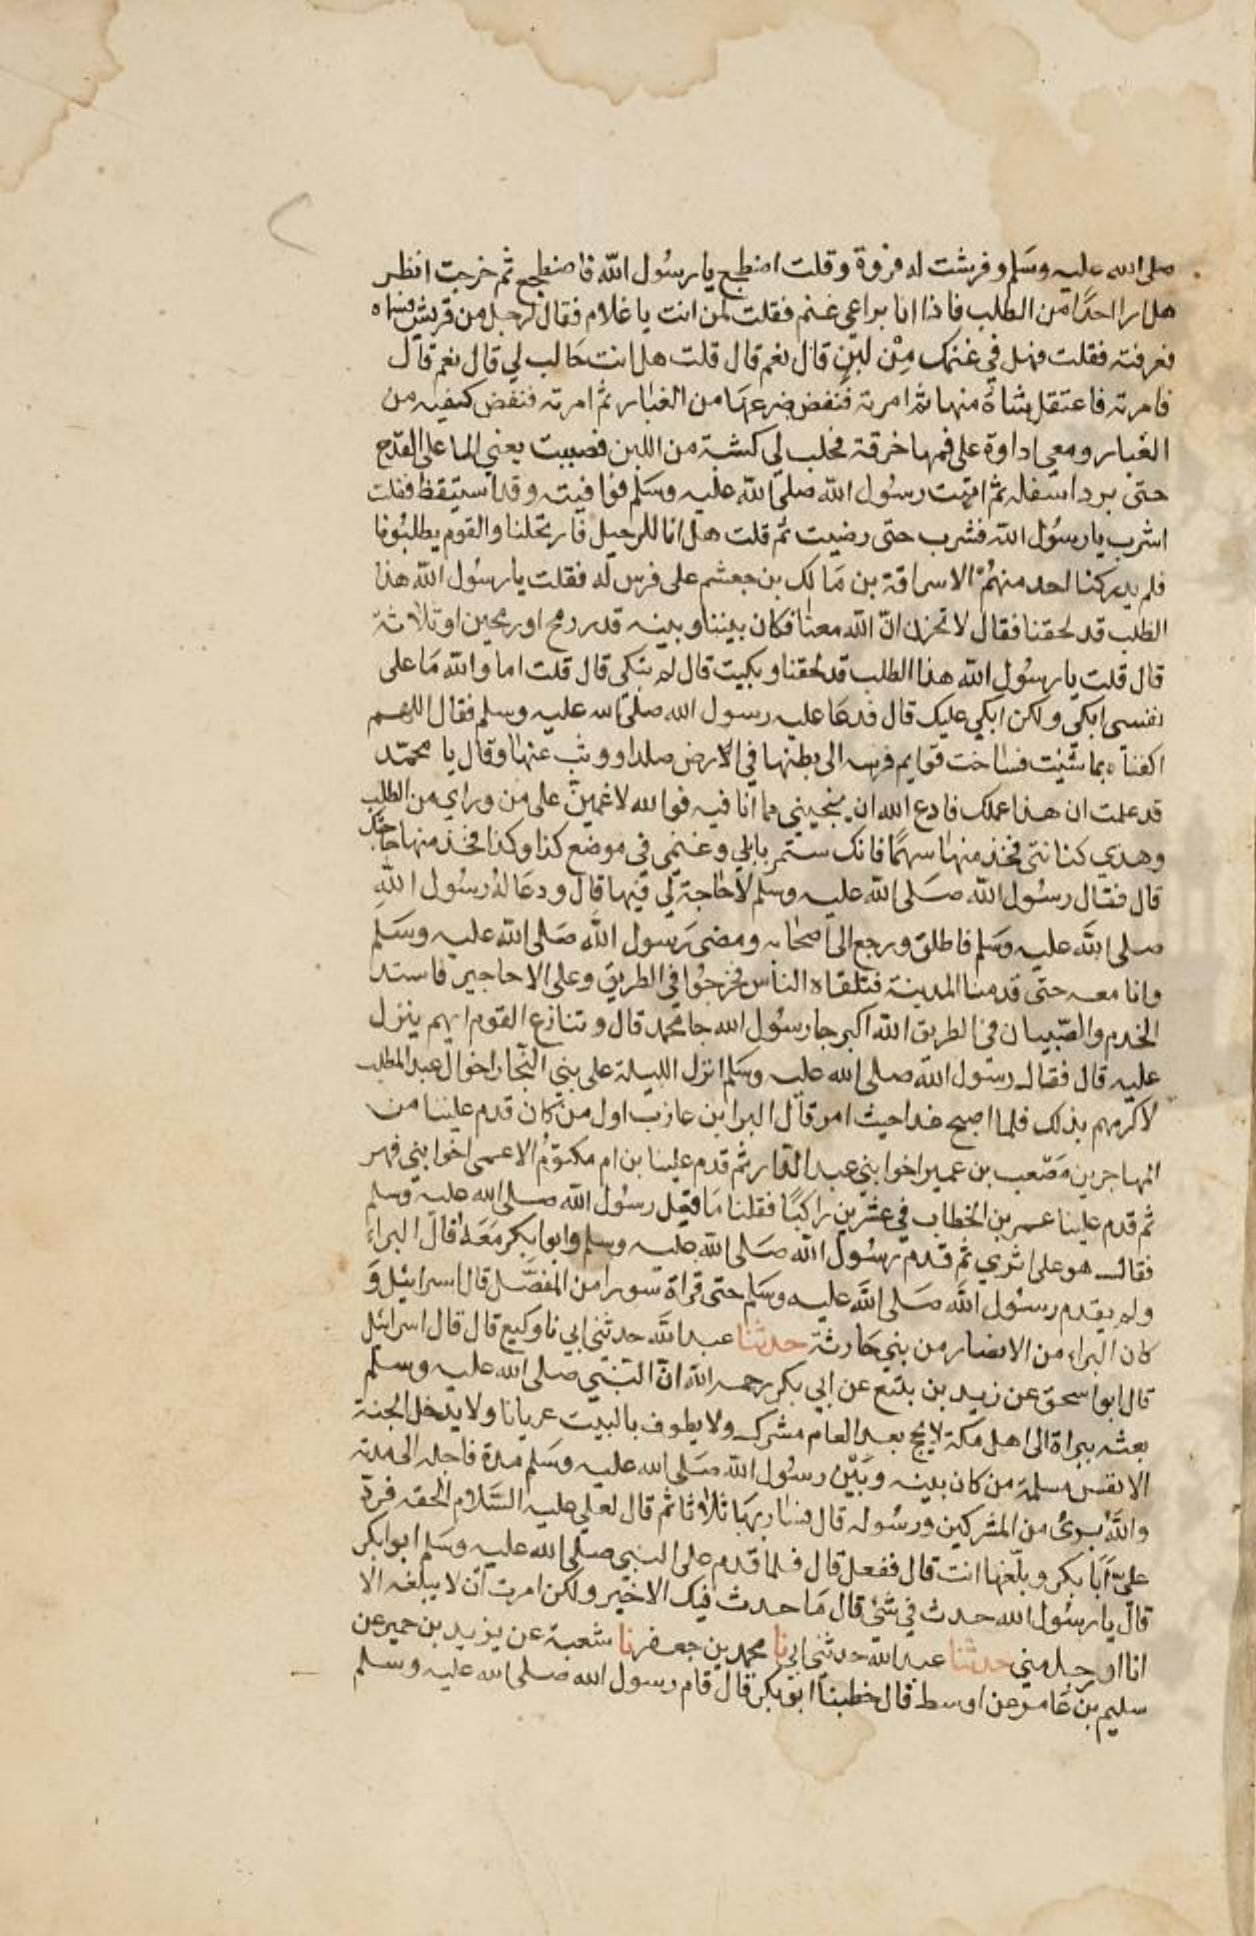 صلى الله عليه وسلم وفرشت له فروة وقلت اضطجع يا رسول الله فاضطجع ثم خرجت انظر
هل ارا احدًا من الطلب فاذا انا براعي غنم فقلت لمن انت يا غلام فقال لرجل من قريش فسماه
فعرفته فقلت فهل في غنمك مِنْ لبنٍ قال نعم قال قلت هل انت حالب لي قال نعم قال
فامرته فاعتقل شاة منها ثم امرته فنفض ضرعها من الغبار ثم امرته فنفض كفيه من
الغبار ومعي اداوة على فمها خرقة فحلب لي كثبة من اللبن فصببت يعني الما على القدح
حتى برد اسفله ثم اتيت رسول الله صلى الله عليه وسلم فوافيته وقد استيقظ فقلت
اشرب يا رسول الله فشرب حتى رضيت ثم قلت هل انا للرحيل فارتحلنا والقوم يطلبونا
فلم يدركنا احد منهم الا سراقة بن مالك بن جعشم على فرس له فقلت يا رسول الله هذا
الطلب قد لحقنا فقال لا تحزن انّ الله معنا فكان بيننا وبينه قدر رمح او رمحين او ثلاثة
قال قلت يا رسول الله هذا الطلب قد لحقنا وبكيت قال لم تبكى قال قلت اما والله ما على
نفسى ابكى ولكن ابكي عليك قال فدعا عليه رسول الله صلى الله عليه وسلم فقال اللهم
اكفناه بما شئت فساخت قوايم فرسه الى بطنها في الارض صلد او وثب عنها وقال يا محمّد
قد علمت ان هذا عملك فادع الله ان ينجيني مما انا فيه فوالله لاعمين على من وراي من الطلب
وهذي كنانتى فخذ منها سهمًا فانك ستمر بابلي وغنمي في موضع كذا وكذا فخذ منها حاجتك
قال فقال رسول الله صلى الله عليه وسلم لا حاجة لي فيها قال ودعا له رسول الله
صلى الله عليه وسلم فاطلق ورجع الى اصحابه ومضى رسول الله صلى الله عليه وسلم
وانا معه حتى قدمنا المدينة فتلقاه الناس فخرجوا في الطريق وعلى الاجاجير فاستد
الخدم والصّبيان في الطريق الله اكبر جا رسول الله جا محمد قال وتنازع القوم ايهم ينزل
عليه قال فقال رسول الله صلى الله عليه وسلم انزل الليلة على بني النجار اخوال عبد المطلب
لاكرمهم بذلك فلما اصبح غدا حيث امر قال البرا بن عازب اول من كان قدم علينا من
المهاجرين مصعب بن عمير اخوا بني عبد الدار ثم قدم علينا بن ام مكتوم الاعمى اخوا بني فهر
ثم قدم علينا عمر بن الخطاب في عشرين راكبًا فقلنا ما فعل رسول الله صلى الله عليه وسلم
فقال هو على اثري ثم قدم رسول الله صلى الله عليه وسلم وابوا بكر معه قال البراء
ولم يقدم رسول الله صلى الله عليه وسلم حتى قراة سورا من المفصّل قال اسرائيل و
كان البراء من الانصار من بني حارثة حدثنا عبد الله حدثني ابي نا وكيع قال قال اسرائيل
قال ابوا سحق عن زيد بن يثيع عن ابي بكر رحمه الله انّ النبي صلى الله عليه وسلم
بعثه ببراة الى اهل مكة لا يحج بعد العام مشرك ولا يطوف بالبيت عريانا ولا يدخل الجنة
الا نفس مسلمة من كان بينه وبين رسول الله صلى الله عليه وسلم مدة فاجله الى مدته
والله برئ من المشركين ورسوله قال فسار بها ثلاثا ثم قال لعلي عليه السّلام الحقه فردّ
عليّ ابا بكر وبلّغها انت قال ففعل قال فلما قدم على النبي صلى الله عليه وسلم ابوا بكر
قال يا رسول الله حدث في شئ قال ما حدث فيك الا خير ولكن امرت ان لا يبلغه الا
انا او رجل مني حدثنا عبد الله حدثني ابي نا محمد بن جعفر نا شعبة عن يزيد بن حمير عن
سليم بن عامر عن اوسط قال خطبنا ابو بكر قال قام رسول الله صلى الله عليه وسلم